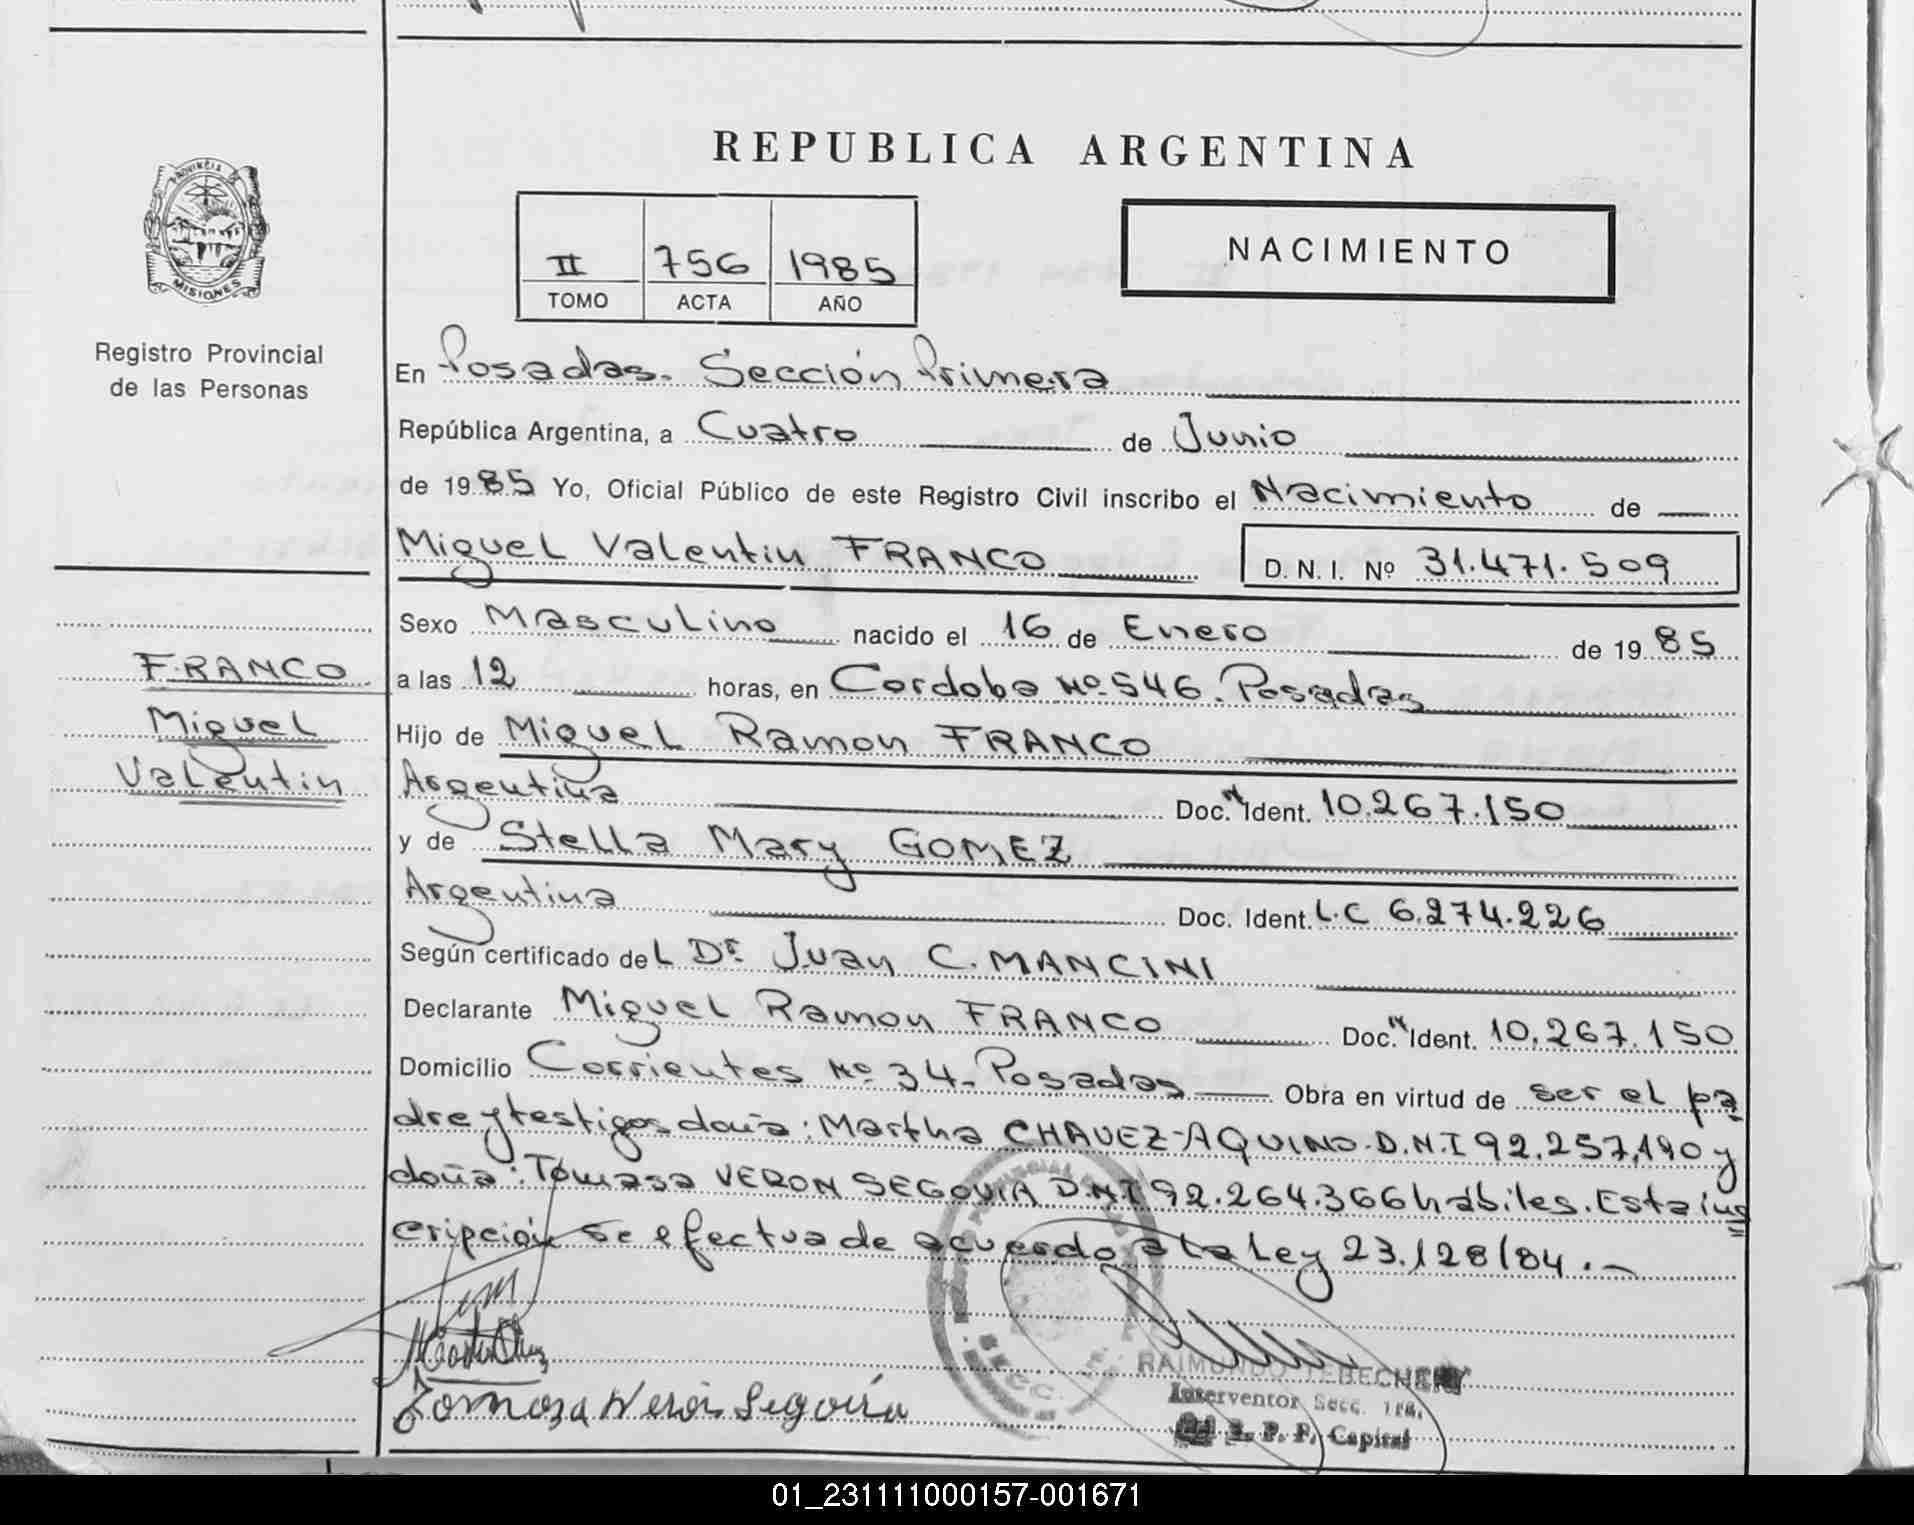 REPUBLICA ARGENTINA
PROVINCIA DE
MISIONES
Registro Provincial
de las Personas
II 756 1985
TOMO ACTA AÑO
NACIMIENTO
En Posadas. Sección Primera
República Argentina, a Cuatro de Junio
de 1985 Yo, Oficial Público de este Registro Civil inscribo el Nacimiento de
Miguel Valentin FRANCO D. N. I. Nº 31.471.509
Sexo Masculino nacido el 16 de Enero de 1985
a las 12 horas, en Cordoba Nº 546. Posadas
Hijo de Miguel Ramon FRANCO
Argentina Doc. Ident. 10.267.150
y de Stella Mary GOMEZ
Argentina Doc. Ident. L.C 6.274.226
Según certificado del Dr. Juan C. MANCINI
Declarante Miguel Ramon FRANCO Doc. Ident. 10.267.150
Domicilio Corrientes Nº 34. Posadas Obra en virtud de ser el pa
dre y testigos doña: Martha CHAVEZ-AQUINO. D.N.I 92.257.190 y
doña: Tomasa VERON SEGOVIA D.N.I 92.264.366 hábiles. Esta ins
cripción se efectua de acuerdo a la Ley 23.128/84.-
FRANCO
Miguel
Valentin
Tomasa Verón Segovia
RAIMUNDO TEBECHERY
Interventor Secc. 1ra.
R. P. P. Capital
01_231111000157-001671